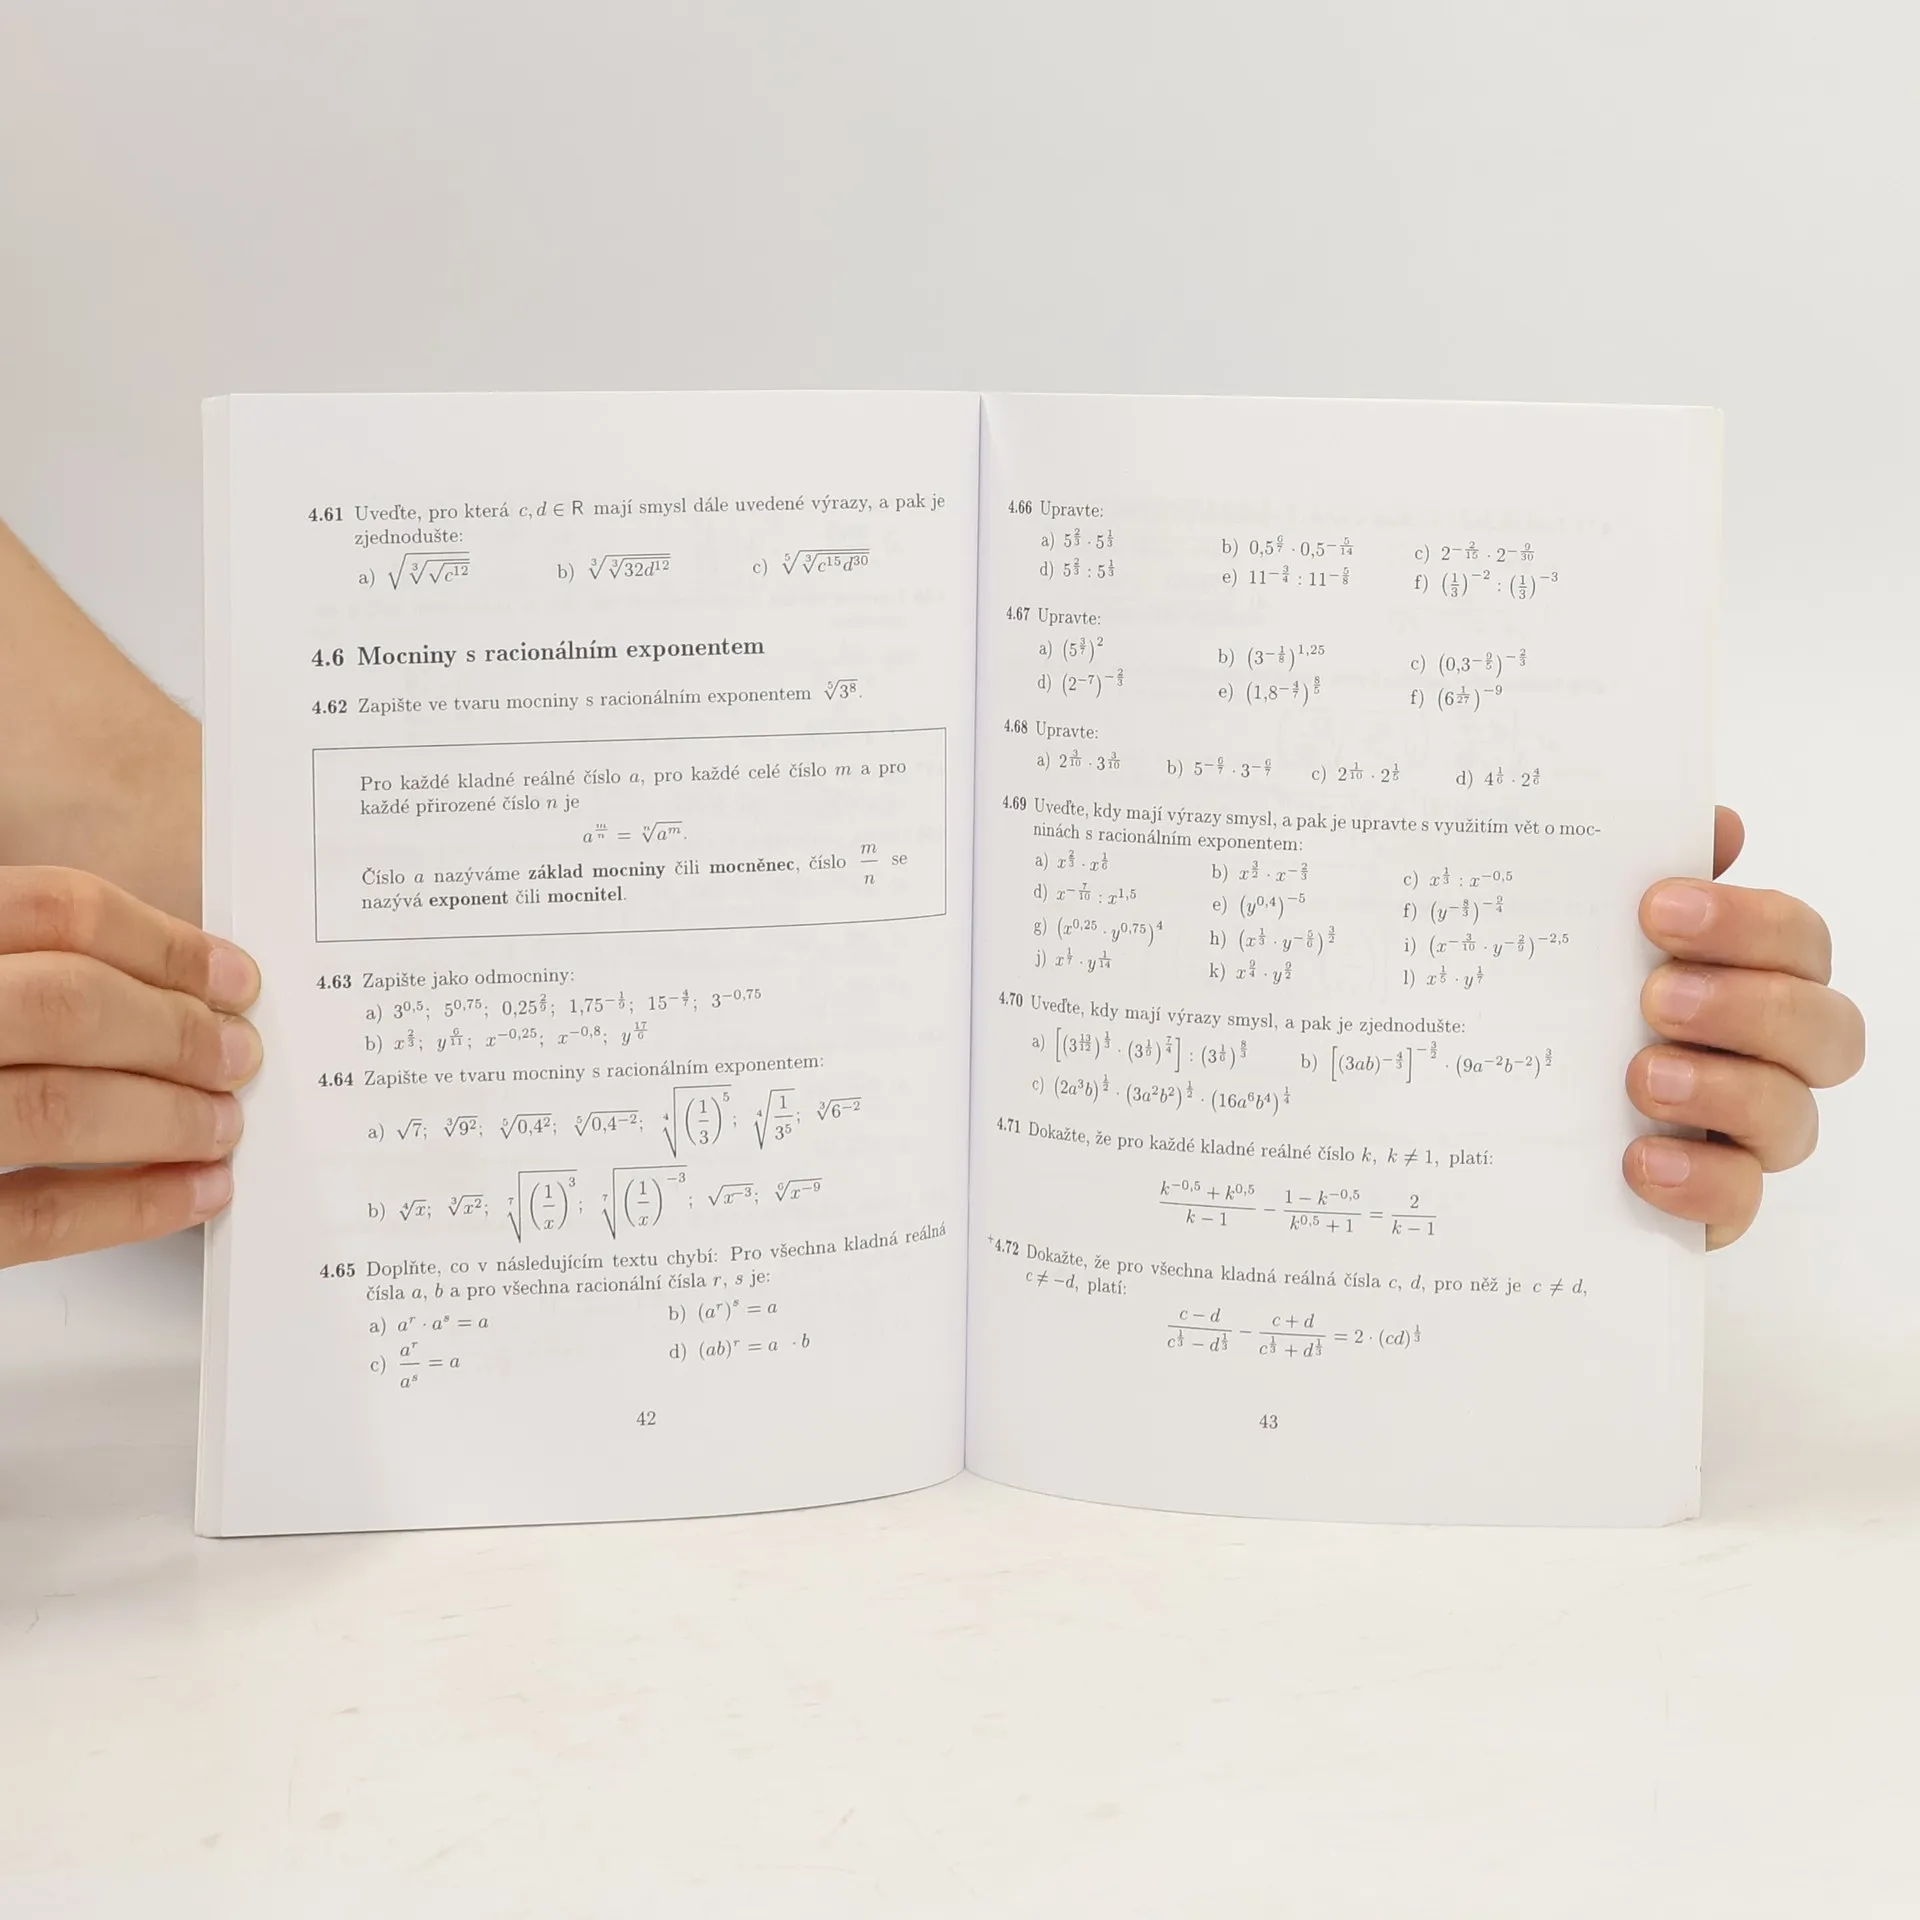 4.61 Uveďte, pro která c, d ∈ R mají smysl dále uvedené výrazy, a pak je
zjednodušte:
a) √(∛(√(c¹²))) b) ∛(∛(32d¹²)) c) ⁵√(∛(c¹⁵d³⁰))
4.6 Mocniny s racionálním exponentem
4.62 Zapište ve tvaru mocniny s racionálním exponentem ⁵√(3⁸).
Pro každé kladné reálné číslo a, pro každé celé číslo m a pro
každé přirozené číslo n je
a^(m/n) = ⁿ√(a^m).
Číslo a nazýváme základ mocniny čili mocněnec, číslo m/n se
nazývá exponent čili mocnitel.
4.63 Zapište jako odmocniny:
a) 3^(0,5); 5^(0,75); 0,25^(2/5); 1,75^(−1/5); 15^(−4/7); 3^(−0,75)
b) x^(2/3); y^(6/11); x^(−0,25); x^(−0,8); y^(17/6)
4.64 Zapište ve tvaru mocniny s racionálním exponentem:
a) √7; ∛(9²); ⁵√(0,4²); ⁵√(0,4^(−2)); ⁴√((1/3)⁵); ⁴√(1/3⁵); ∛(6^(−2))
b) ⁴√x; ∛(x²); ⁷√((1/x)³); ⁷√((1/x)^(−3)); √(x^(−3)); ⁶√(x^(−9))
4.65 Doplňte, co v následujícím textu chybí: Pro všechna kladná reálná
čísla a, b a pro všechna racionální čísla r, s je:
a) a^r · a^s = a b) (a^r)^s = a
c) a^r/a^s = a d) (ab)^r = a · b
42
4.66 Upravte:
a) 5^(2/3) · 5^(1/3) b) 0,5^(6/7) · 0,5^(−5/14) c) 2^(−2/15) · 2^(−9/30)
d) 5^(2/3) : 5^(1/3) e) 11^(−3/4) : 11^(−5/8) f) (1/3)^(−2) : (1/3)^(−3)
4.67 Upravte:
a) (5^(3/7))² b) (3^(−1/8))^(1,25) c) (0,3^(−9/5))^(−2/3)
d) (2^(−7))^(−2/3) e) (1,8^(−4/7))^(8/5) f) (6^(1/27))^(−9)
4.68 Upravte:
a) 2^(3/10) · 3^(3/10) b) 5^(−6/7) · 3^(−6/7) c) 2^(1/10) · 2^(1/5) d) 4^(1/6) · 2^(4/6)
4.69 Uveďte, kdy mají výrazy smysl, a pak je upravte s využitím vět o moc-
ninách s racionálním exponentem:
a) x^(2/3) · x^(1/6) b) x^(3/2) · x^(−2/3) c) x^(1/3) : x^(−0,5)
d) x^(−7/10) : x^(1,5) e) (y^(0,4))^(−5) f) (y^(−8/3))^(−9/4)
g) (x^(0,25) · y^(0,75))⁴ h) (x^(1/3) · y^(−5/6))^(3/2) i) (x^(−3/10) · y^(−2/9))^(−2,5)
j) x^(1/7) · y^(1/14) k) x^(9/4) · y^(9/2) l) x^(1/5) · y^(1/7)
4.70 Uveďte, kdy mají výrazy smysl, a pak je zjednodušte:
a) [(3^(13/12))^(1/3) · (3^(1/6))^(7/4)] : (3^(1/6))^(8/3) b) [(3ab)^(−4/3)]^(−3/2) · (9a^(−2)b^(−2))^(3/2)
c) (2a³b)^(1/2) · (3a²b²)^(1/2) · (16a⁶b⁴)^(1/4)
4.71 Dokažte, že pro každé kladné reálné číslo k, k ≠ 1, platí:
(k^(−0,5) + k^(0,5))/(k − 1) − (1 − k^(−0,5))/(k^(0,5) + 1) = 2/(k − 1)
+4.72 Dokažte, že pro všechna kladná reálná čísla c, d, pro něž je c ≠ d,
c ≠ −d, platí:
(c − d)/(c^(1/3) − d^(1/3)) − (c + d)/(c^(1/3) + d^(1/3)) = 2 · (cd)^(1/3)
43